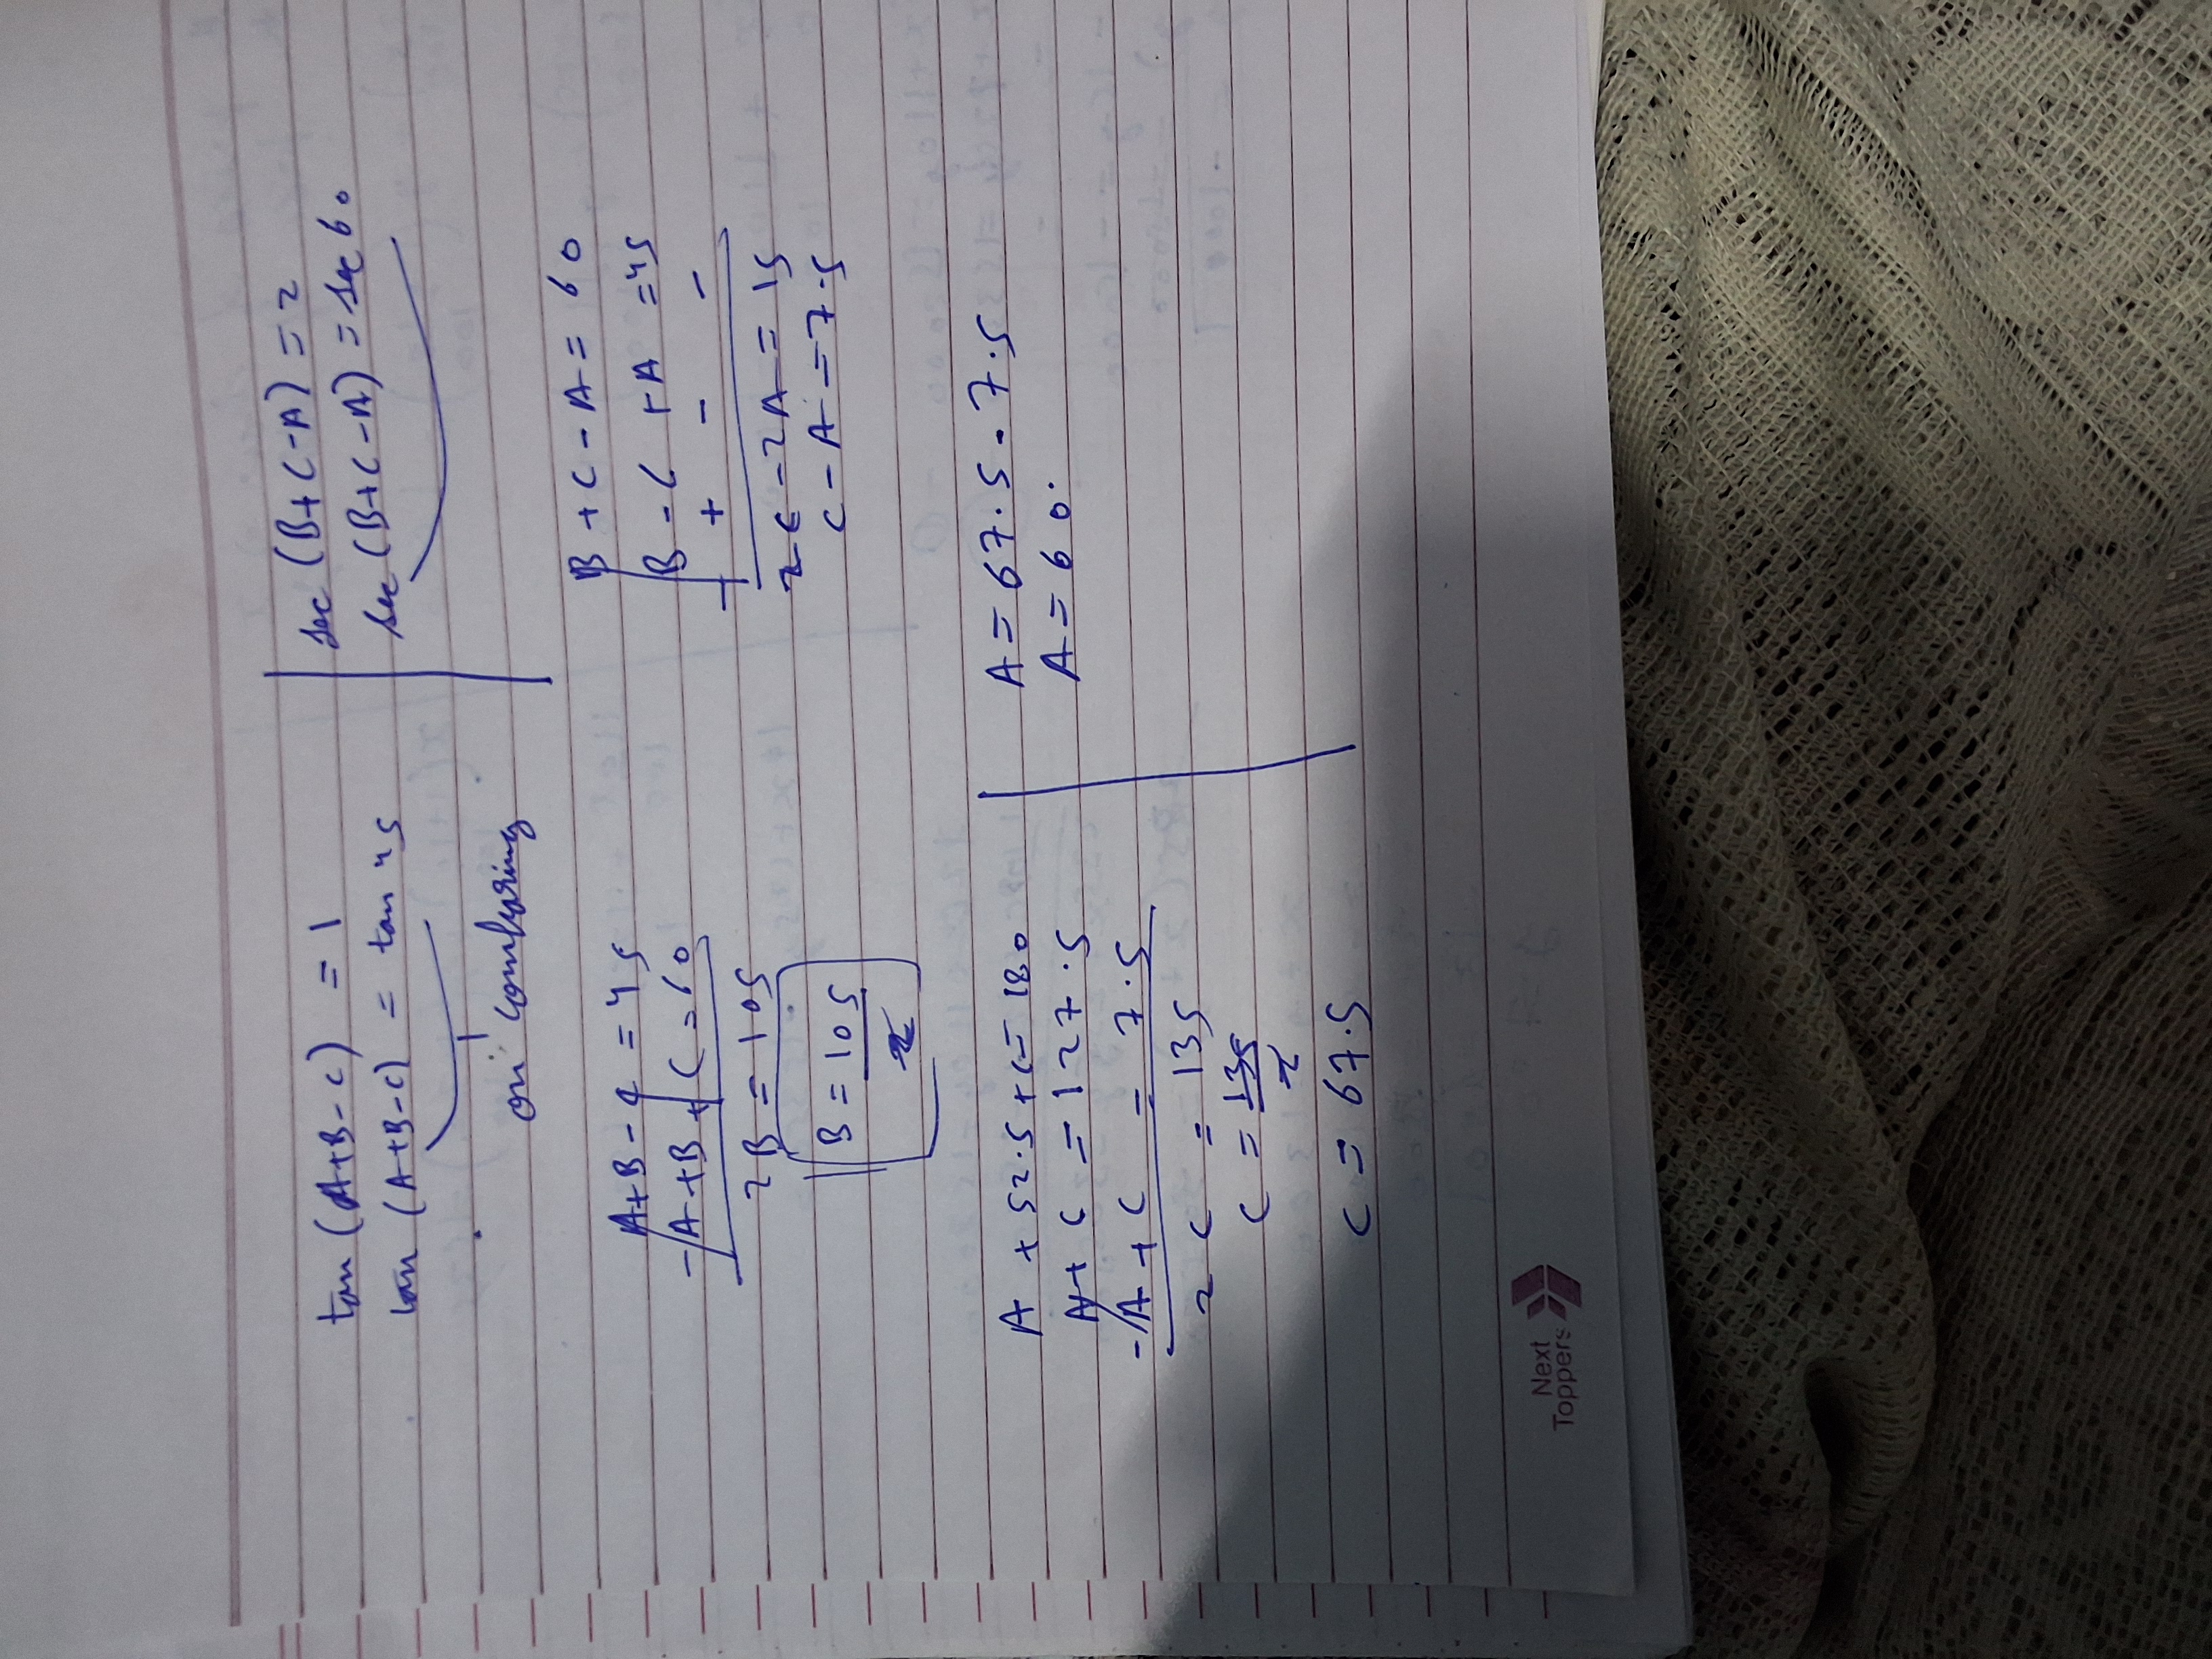 tan (A+B-C) = 1
tan (A+B-C) = tan 45
on comparing
sec (B+C-A) = 2
sec (B+C-A) = sec 60
A+B-C = 45
-A+B+C = 60
2B = 105
B = 105
2
B + C - A = 60
B - C + A = 45
- + - -
2C - 2A = 15
C - A = 7.5
A + 52.5 + C = 180
A + C = 127.5
-A + C = 7.5
2C = 135
C = 135
2
C = 67.5
A = 67.5 - 7.5
A = 60.
Next
Toppers